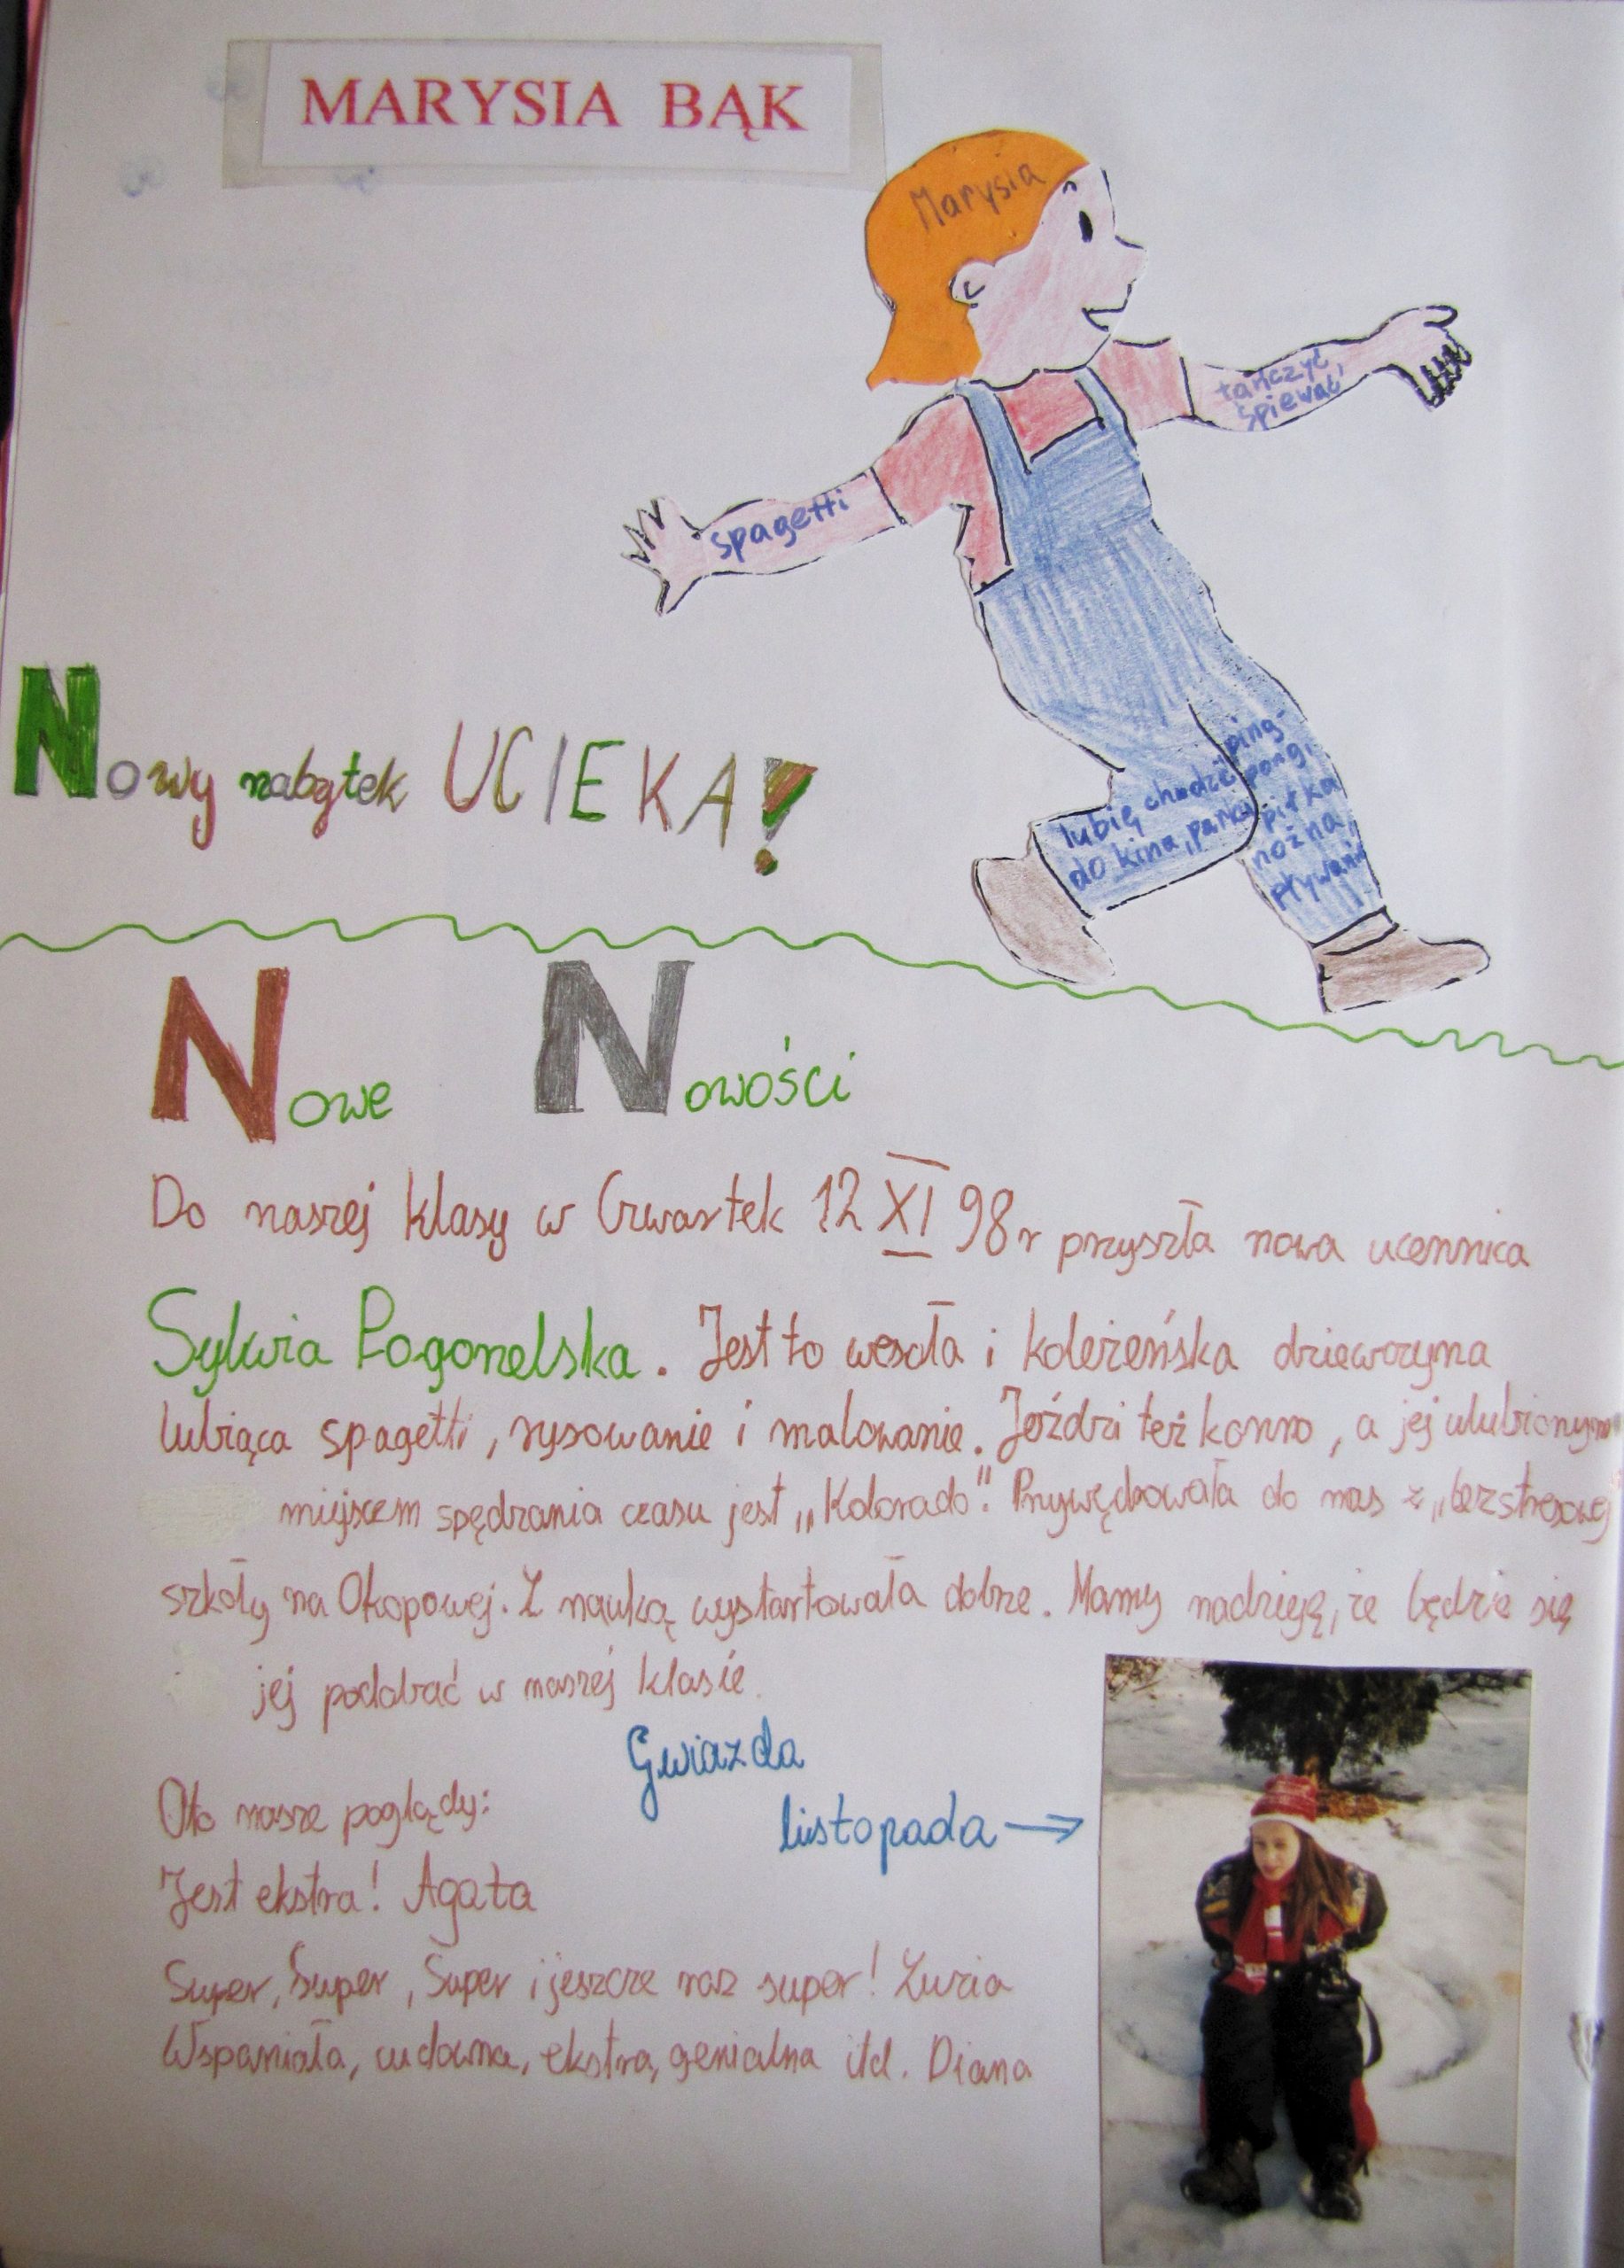 MARYSIA BĄK
Marysia
tańczyć,
śpiewać,
spagetti
Nowy nabytek UCIEKA!
lubię chodzić
do kina, parku
ping-
pong,
piłka
nożna,
pływanie
Nowe Nowości
Do naszej klasy w Czwartek 12 XI 98r przyszła nowa uczennica
Sylwia Pogonelska. Jest to wesoła i koleżeńska dziewczyna
lubiąca spagetti, rysowanie i malowanie. Jeździ też konno, a jej ulubionym
miejscem spędzania czasu jest „Kolorado". Przywędrowała do nas z „bezstresowej
szkoły na Okopowej. Z nauką wystartowała dobrze. Mamy nadzieję, że będzie się
jej podobać w naszej klasie.
Gwiazda
listopada →
Oto nasze poglądy:
Jest ekstra! Agata
Super, Super, Super i jeszcze raz super! Luzia
Wspaniała, cudowna, ekstra, genialna itd. Diana